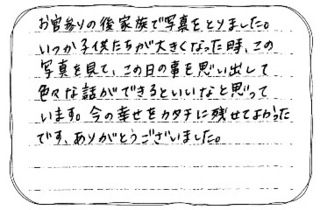 お宮参りの後家族で写真をとりました。
いつか子供たちが大きくなった時、この
写真を見て、この日の事を思い出して
色々な話ができるといいなと思って
います。今の幸せをカタチに残せてよかった
です、ありがとうございました。